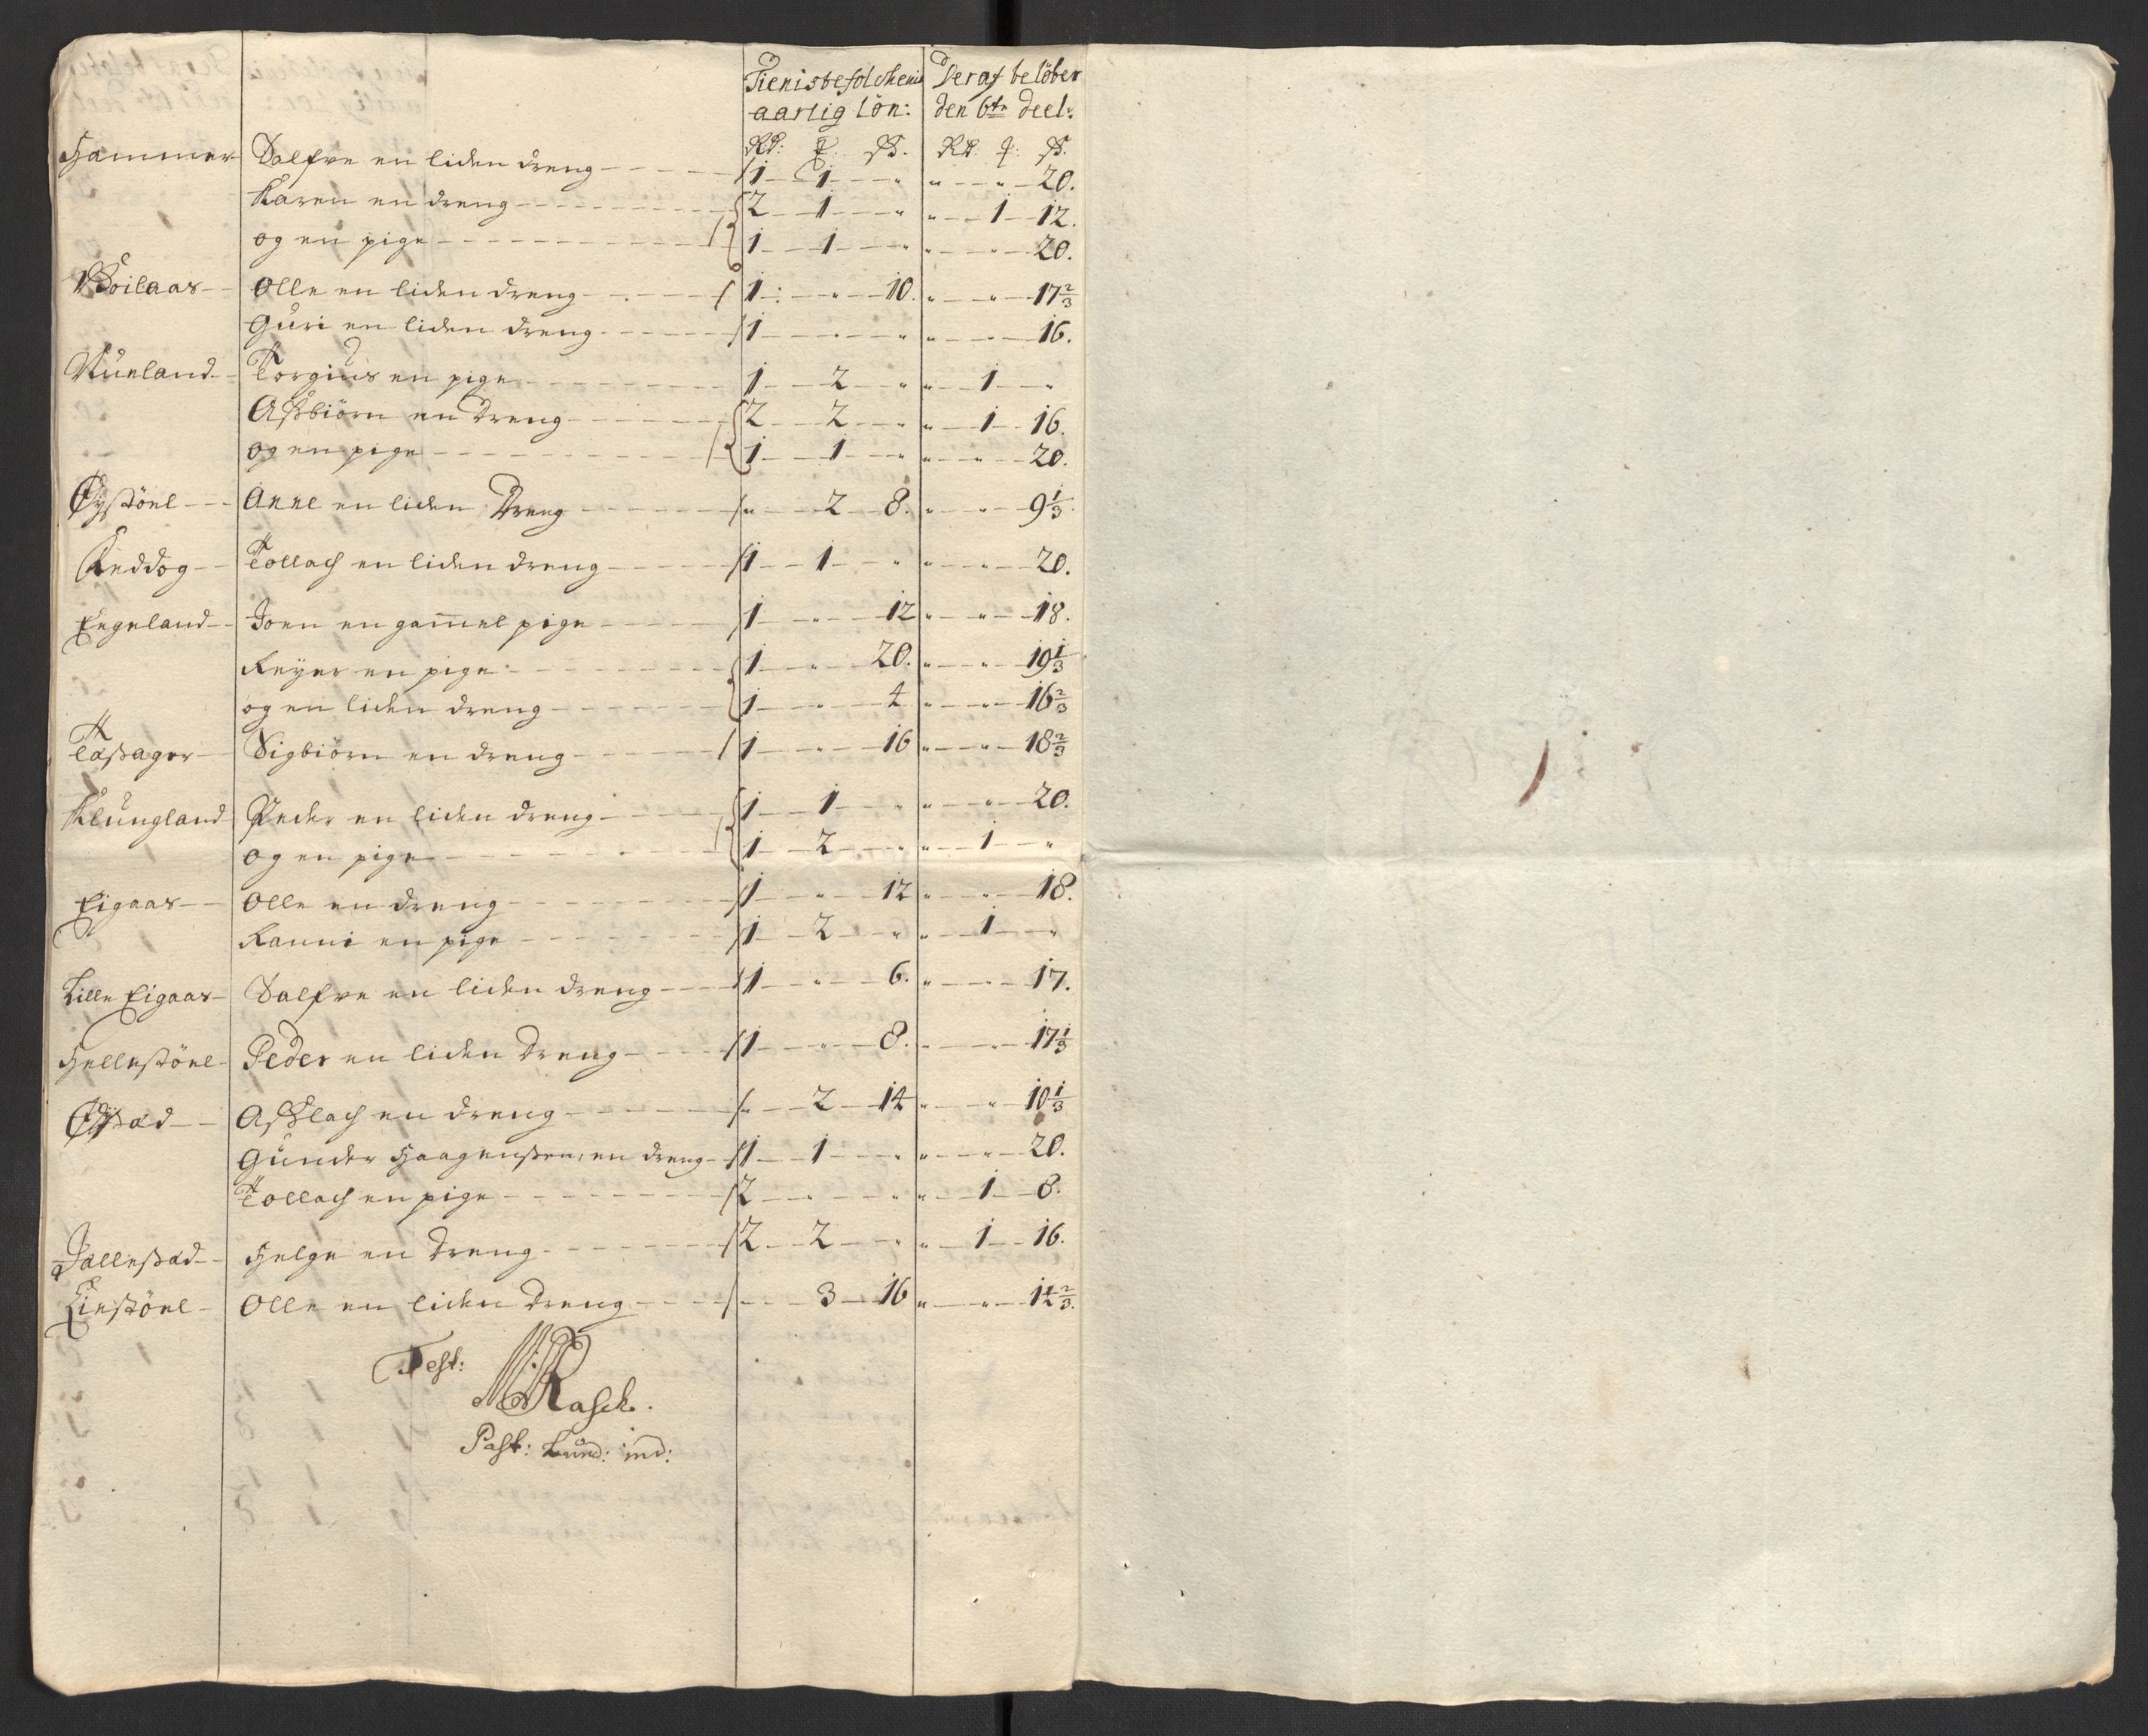 Tienistefolchenis Deraf belöber
aarlig lön: den 6te deel:
Rd: ƒ: ß. Rd. ƒ: ß.
Hammer Salfve en liden dreng 1 1 " " " 20.
Karen en dreng 2 1 " " 1 12.
og en pige 1 1 " " " 20.
Olle en liden dreng 1 " 10. " " 17 2/3
Guri en liden dreng 1 " " " " 16.
Nueland Torgius en pige 1 2 " " 1 "
Asbiörn en dreng 2 2 " " 1 16.
og en pige 1 1 " " " 20.
Öystöel Anne en liden Dreng " 2 8. " " 9 1/3
Keddog Tollach en liden dreng 1 1 " " " 20.
Eegeland Joen en gam̄el pige 1 " 12 " " 18.
Reyer en pige 1 " 20. " " 19 1/3
og en liden dreng 1 " 4 " " 16 2/3
Tæssager Sigbiörn en dreng 1 " 16 " " 18 2/3
Klungland Peder en liden dreng 1 1 " " " 20.
og en pige 1 2 " " 1 "
Eigaas Olle en dreng 1 " 12 " " 18.
Ranni en pige 1 2 " " 1 "
Lille Eigaas Salfve en liden dreng 1 " 6. " " 17.
Hellestöel Peder en liden Dreng 1 " 8. " " 17 1/3
Asslach en dreng " 2 14 " " 10 1/3
Gunder Haagenssen, en dreng 1 1 " " " 20.
Tollach en pige 2 " " " 1 8.
Jallestad Helge en Dreng 2 2 " " 1 16.
Liestöel Olle en liden Dreng " 3 16 " " 14 2/3.
Test:
Rasch.
Past: Lund: ind: